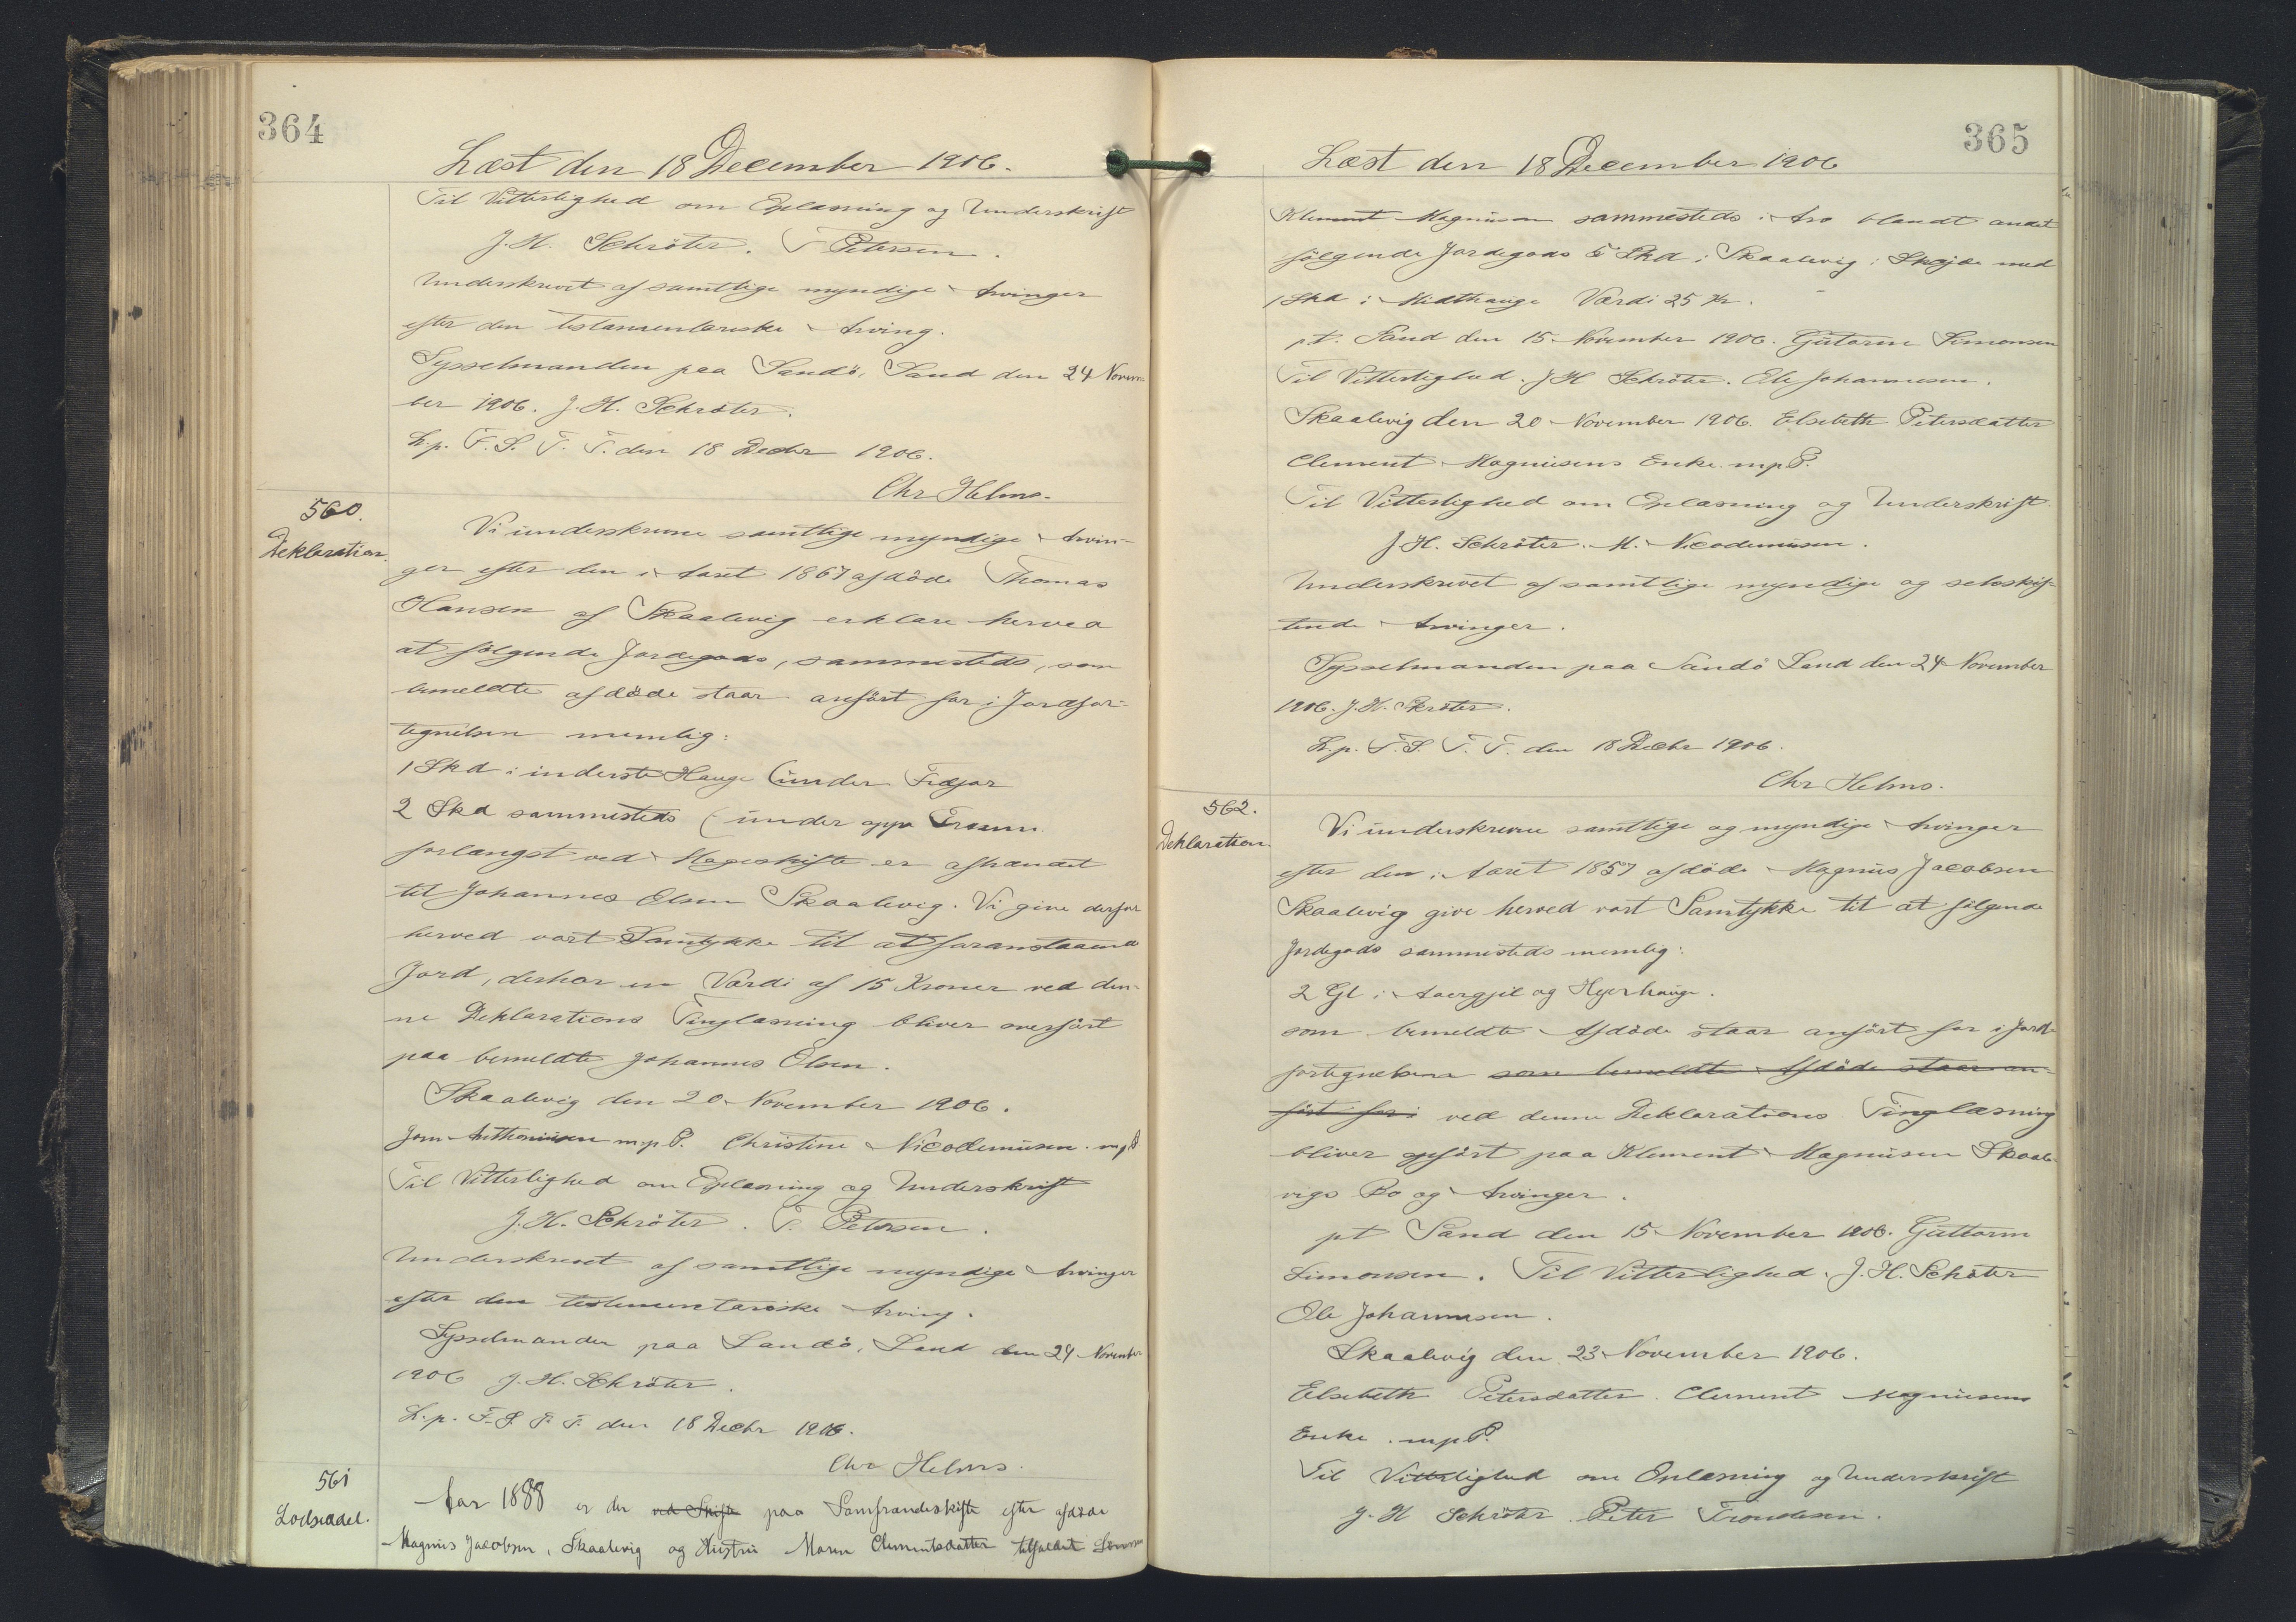 364
Læst den 18 December 1906.
Til Vitterlighed om Oplæsning og Underskrift
J. H. Schröter. T. Petersen.
Underskrevet af samtlige myndige Arvinger
efter den testamentariske Arving.
Sysselmanden paa Sandö, Sand den 24 Novem-
ber 1906. J. H. Schröter.
L. p. F. S. T. T. den 18 Decbr 1906.
Chr Helms.
560.
Deklaration.
Vi underskrevne samtlige myndige Arvin-
ger efter den i Aaret 1867 afdöde Thomas
Hansen af Skaalevig erklære herved
at fölgende Jordegods, sammesteds, som
bemeldte afdöde staar anfört for i Jordfor-
tegnelsen nemlig:
1 Skd i inderste Hauge (under
2 Skd sammesteds (under
forlængst ved Mageskifte er afhændet
til Johannes Olsen Skaalevig. Vi give derfor
herved vort Samtykke til at foranstaaende
Jord, der har en Værdi af 15 Kroner ved den-
ne Deklarations Tinglæsning bliver overfört
paa bemeldte Johannes Olsen.
Skaalevig den 20 November 1906.
Joen Anthoniusen m.p.P. Christine Nicodemusen m.p.P
Til Vitterlighed om Oplæsning og Underskrift
J. H. Schröter. T. Petersen.
Underskrevet af samtlige myndige Arvinger
efter den testamentariske Arving.
Sysselmanden paa Sandö, Sand den 24 November
1906 J. H. Schröter.
L. p. F. S. T. T. den 18 Decbr 1906.
Chr Helms.
561
Lodseddel.
Aar 1888 er der ved Skifte paa Samfrændeskifte efter afdöde
Magnus Jacobsen, Skaalevig og Hustru Maren Clementsdatter tilfaldet Sönnen
365
Læst den 18 December 1906
Klement Magnusen sammesteds i Arv blandt andet
fölgende Jordegods 5 Skd i Skaalevig i Skejde med
1 Skd i Midthauge Værdi 25 Kr.
pt. Sand den 15 November 1906. Gutorm Simonsen
Til Vitterlighed. J H Schröter. Ole Johannesen.
Skaalevig den 20 November 1906. Elsebeth Petersdatter
Clement Magnusens Enke m.p.P.
Til Vitterlighed om Oplæsning og Underskrift.
J. H. Schröter. M. Nicodemusen.
Underskrevet af samtlige myndige og selvskif-
tende Arvinger.
Sysselmanden paa Sandö Sand den 24 November
1906. J. H. Schröter.
L. p. F. S. T. T. den 18 Decbr 1906.
Chr Helms.
562.
Deklaration.
Vi underskrevne samtlige og myndige Arvinger
efter den i Aaret 1857 afdöde Magnus Jacobsen
Skaalevig give herved vort Samtykke til at fölgende
Jordegods sammesteds nemlig:
2 Gl i Aaergjil og Hyerhauge.
som bemeldte Afdöde staar anfört for i Jord-
fortegnelsen som bemeldte Afdöde staar an-
fört for i ved denne Deklarations Tinglæsning
bliver opfört paa Klement Magnusen Skaale-
vigs Bo og Arvinger.
pt Sand den 15 November 1906. Guttorm
Simonsen. Til Vitterlighed. J. H. Schröter
Ole Johannesen.
Skaalevig den 23 November 1906.
Elsebeth Petersdatter. Clement Magnusens
Enke m.p.P.
Til Vitterlighed om Oplæsning og Underskrift
J. H Schröter Peter Trondesen.